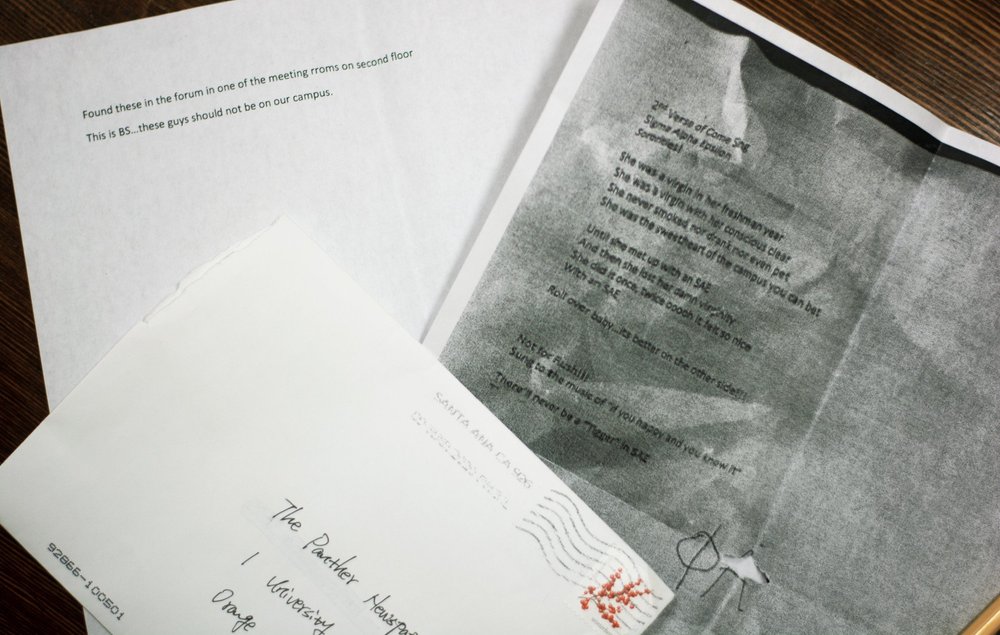 Found these in the forum in one of the meeting rroms on second floor
This is BS...these guys should not be on our campus.
2nd Verse of Come Sng
Sigma Alpha Epsilon
Sororities!
She was a virgin in her freshman year
She was a virgin with her conscious clear
She never smoked, nor drank nor even pet
She was the sweetheart of the campus you can bet
Until she met up with an SAE
And then she lost her damn virginity
She did it once, twice ooooh it felt so nice
With an SAE
Roll over baby...its better on the other side!!!
Not for Rush!!!!
Sung to the music of "if you happy and you know it"
"There'll never be a "Tigger" in SAE
SANTA ANA CA 926
The Panther Newspa
1 University
Orange
92866-100501